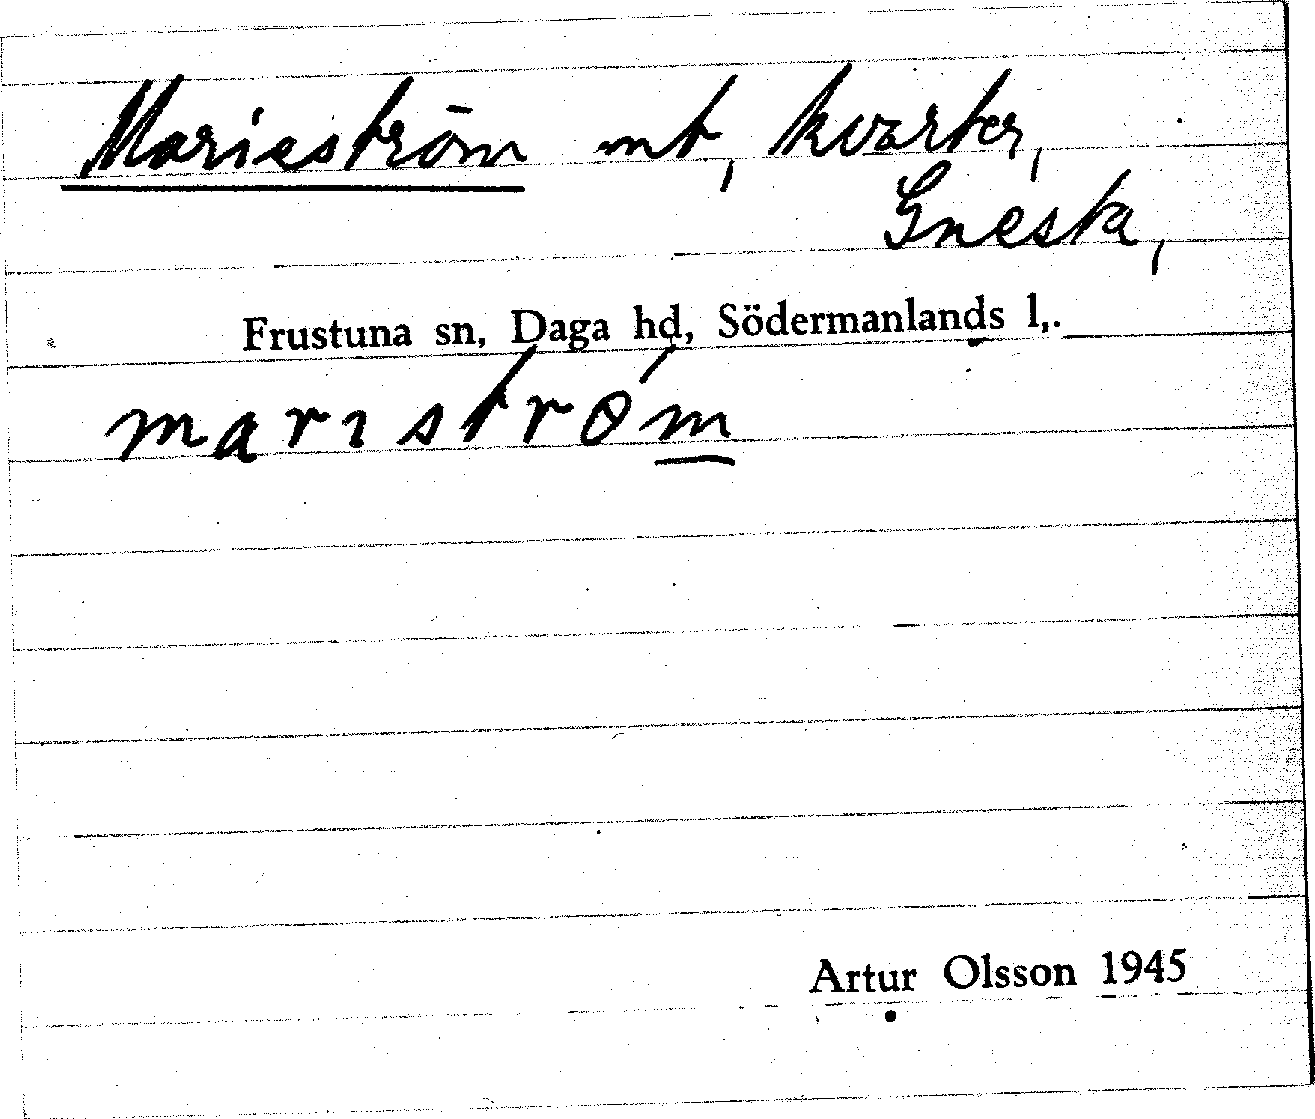 Marieström mt, kvarter,
Gnesta,
Frustuna sn, Daga hd, Södermanlands l,.
marıstrøm
Artur Olsson 1945